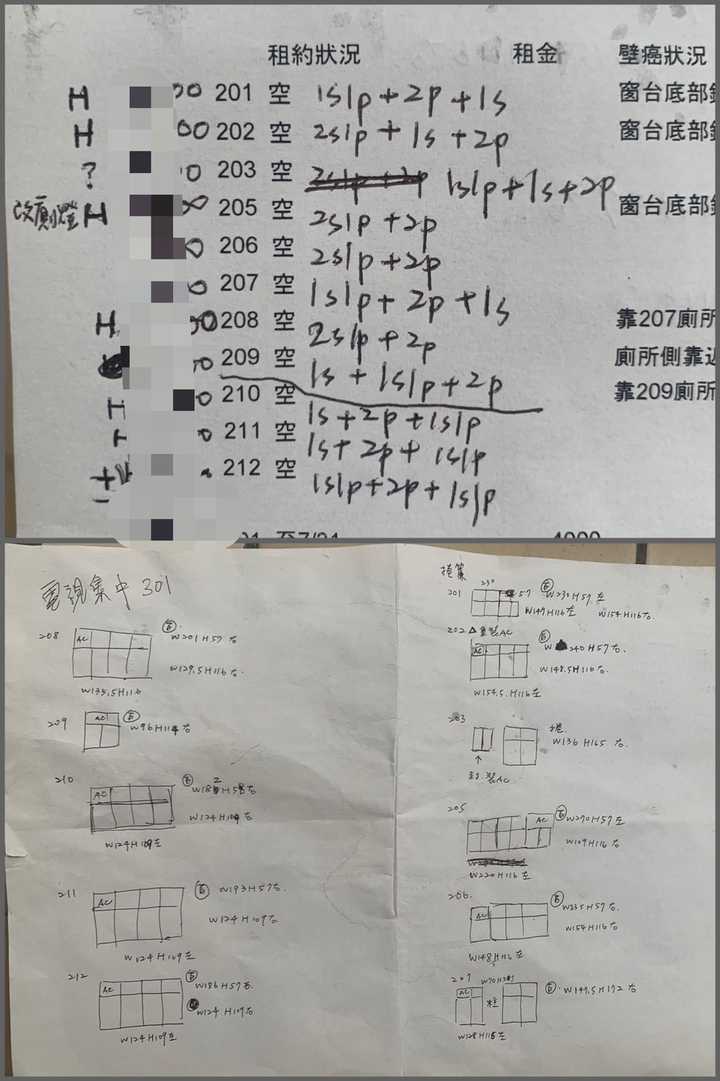 租約狀況 租金 壁癌狀況
H 00 201 空 1s1p+2p+1s 窗台底部
H 00 202 空 2s1p+1s+2p 窗台底部
? 0 203 空 1s1p+1s+2p
改廁燈 H 205 空 2s1p+2p 窗台底部
0 206 空 2s1p+2p
0 207 空 1s1p+2p+1s
H 00 208 空 2s1p+2p 靠207廁所
0 209 空 1s+1s1p+2p 廁所側靠近
H 0 210 空 1s+2p+1s1p 靠209廁所
0 211 空 1s+2p+1s1p
212 空 1s1p+2p+1s1p
電視集中 301
208 AC W201H57右
W129.5H116右
W135.5H116
209 AC W96H114右
210 AC
W124H109左
211 AC W193H57右
W124H109右
W124H109左
212 AC W186H57右
W124H109右
W124H109左
201 230 57 W230H57左
W147H116左 W154H116右
202 AC 240H57右
W148.5H116右
W154.5H116左
203 W136H165右
AC
205 AC W270H57左
W109H116右
W220H116左
206 AC W235H57右
W154H116右
207 AC 柱 W149.5H172右
W128H115左